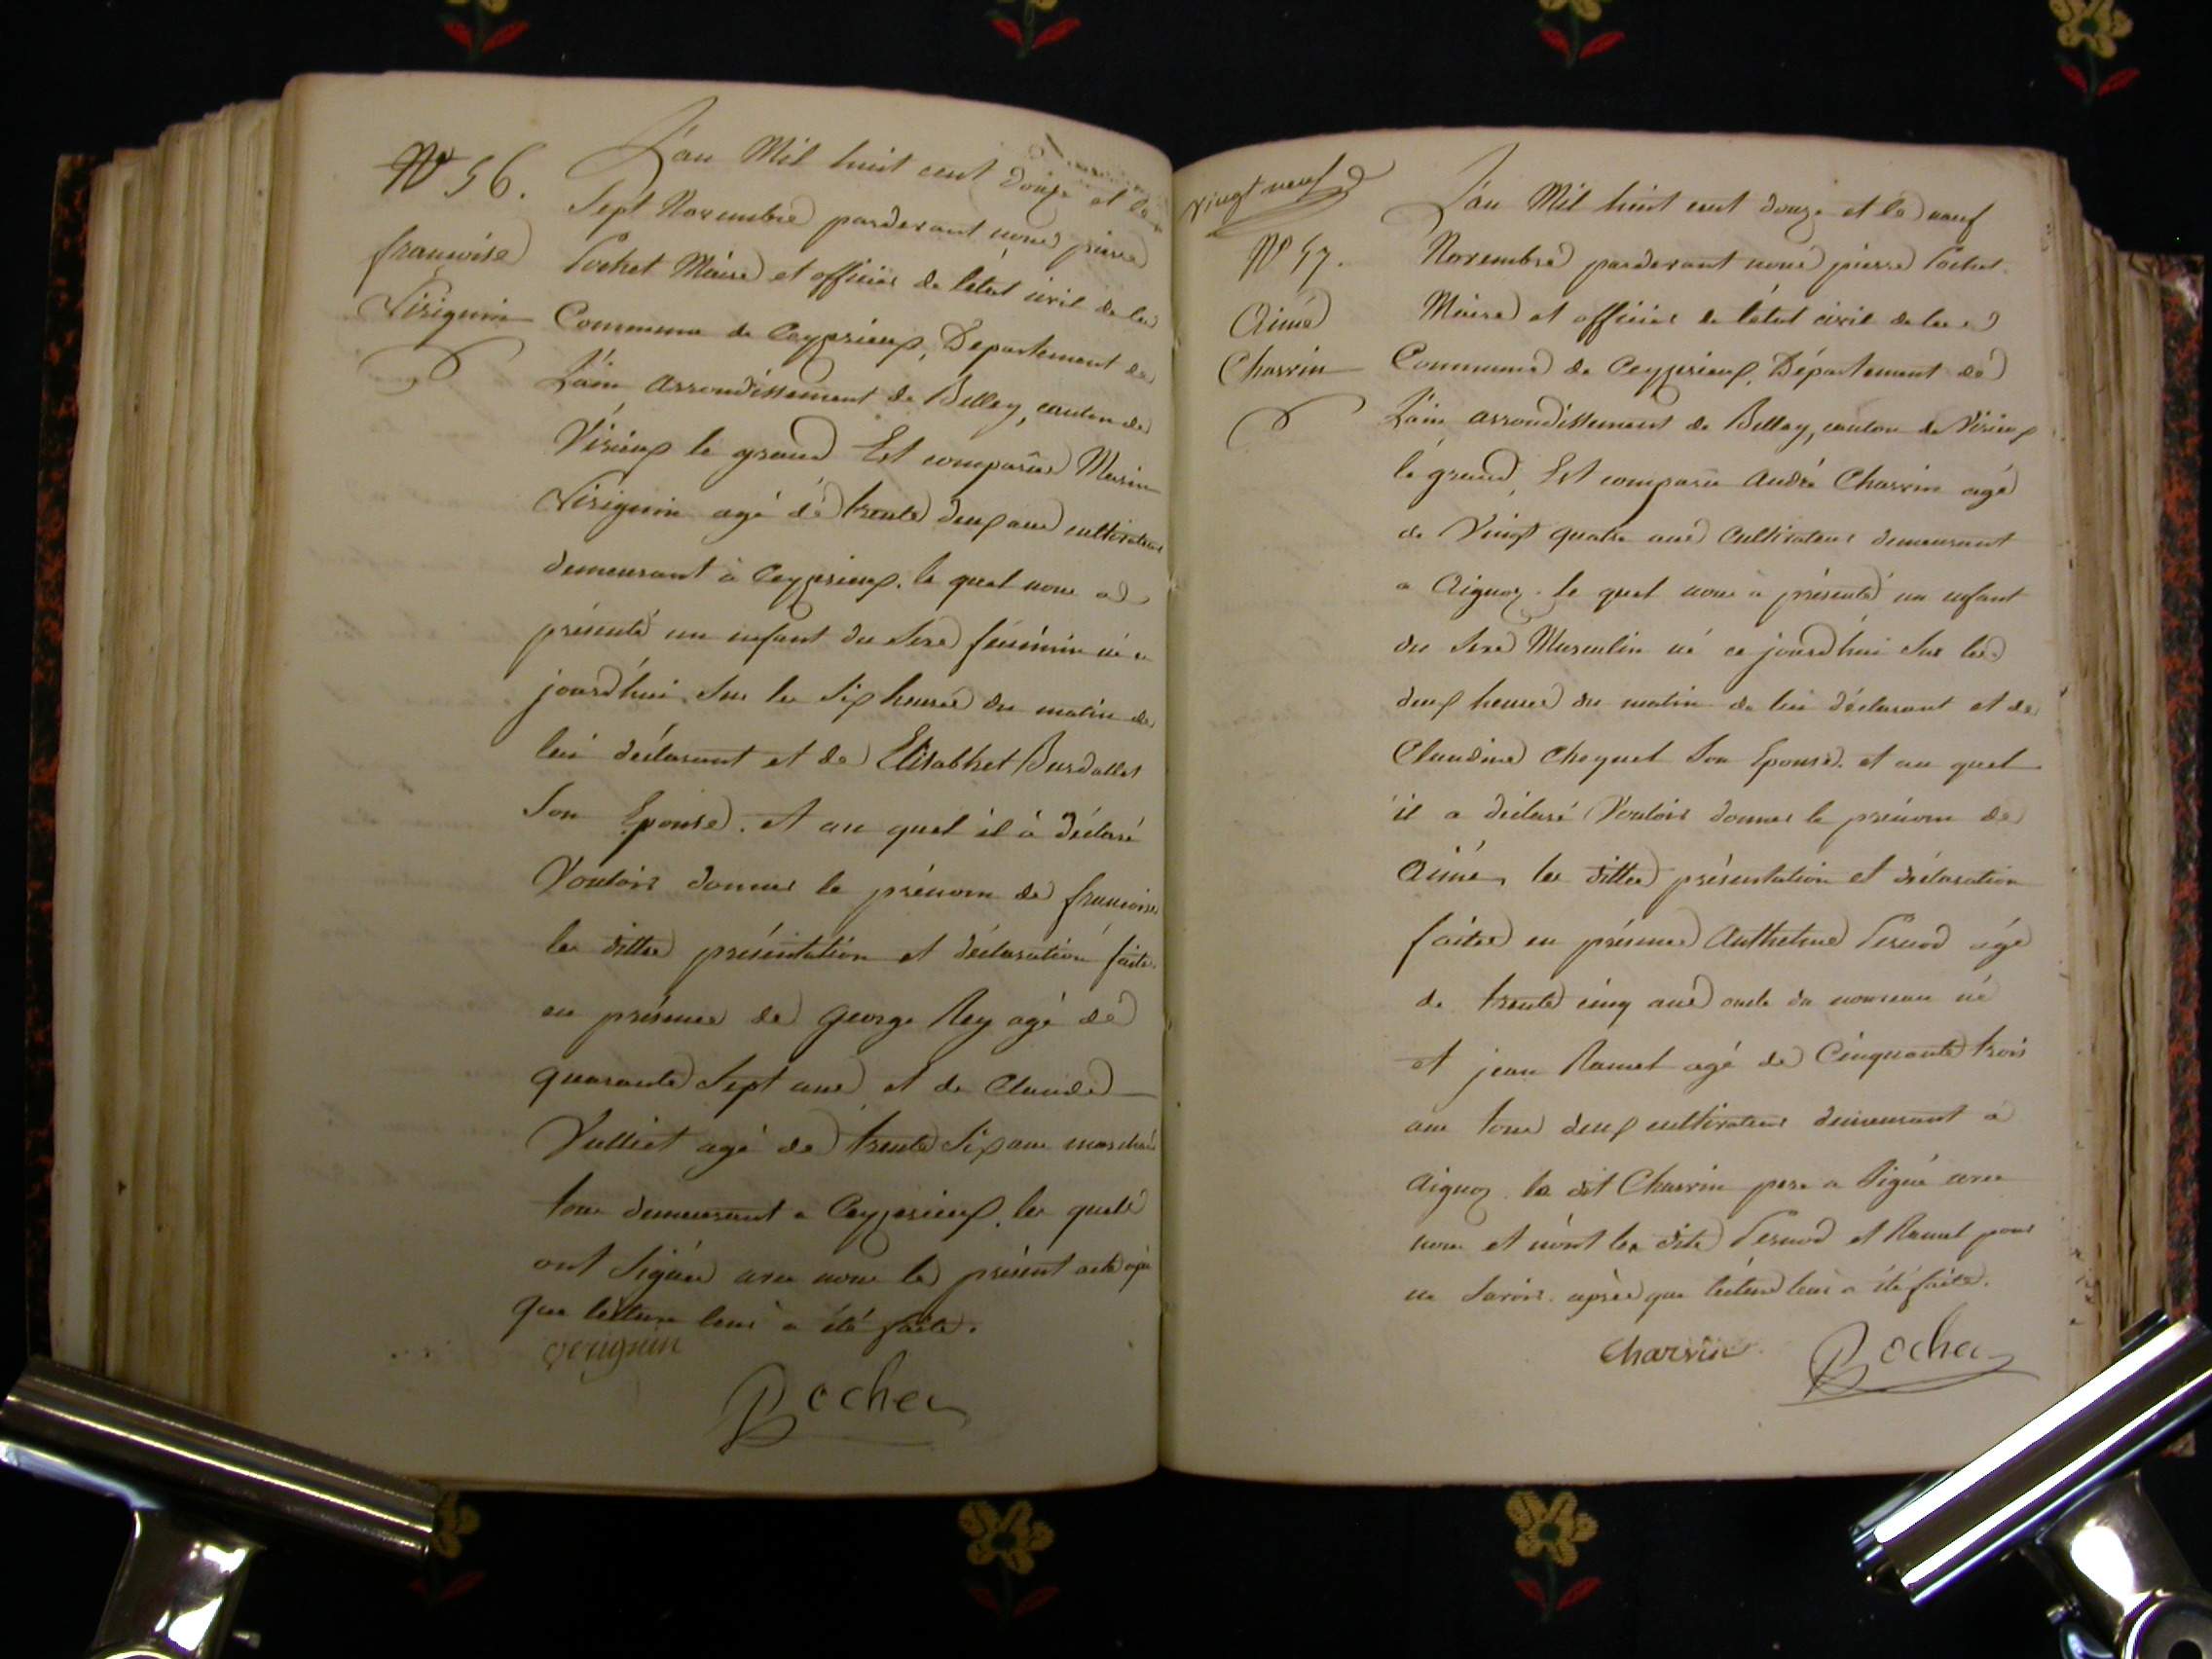 Nº 56.
francoise
Virignin
L'an Mil huit cent douze et le
Sept Novembre pardevant nous pierre
Pochet Maire et officier de l'état civil de la
Commune de Ceyzerieux, Departement de
L'ain arrondissement de Belley, canton de
Virieux le grand Est comparue Marin
Virignin agé dé trente deux ans cultivateur
demeurant à Ceyzerieux. le quel nous a
présenté un enfant du Sexe féminin né ce
jourd'hui Sur les Six heures du matin de
lui déclarant et de Elisabhet Burdallet
Son Epouse. et au quel il à déclaré
Vouloir donner le prénom de francoise
les dittes présentation et déclaration faites
en présence de George Rey agé dé
quarante Sept ans et de Claude
Vulliet agé de trente Six ans marchand
tous demeurant a Ceyzerieux. les quels
ont Signés avec nous le présent acte après
que lecture leur a été faite.
Virignin
Pochet
Vingt neuf
Nº 57.
Aimé
Charvin
L'an Mil huit cent douze et le neuf
Novembre pardevant nous pierre Pochet
Maire et officier de l'état civil de la
Commune de Ceyzerieux, Département de
L'ain arrondissement de Belley, canton de Virieux
le grand, Est comparu André Charvin agé
de Vingt quatre ans Cultivateur demeurant
a Aignoz. le quel nous à présenté un enfant
du Sexe Masculin né ce jourd'hui Sur les
deux heures du matin de lui déclarant et de
Claudine Choquet Son Epouse. et au quel
il a déclaré Vouloir donner le prénom de
Aimé, les dittes présentation et déclaration
faites en présence Anthelme Pernod agé
de trente cinq ans oncle du nouveau né
et jean Ramel agé de Cinquante trois
ans tous deux cultivateurs demeurant a
Aignoz. le dit Charvin pere a Signé avec
nous et n'ont les dits Pernod et Ramel pour
ne Savoir. après que lecture leur a été faite.
Charvin
Pochet